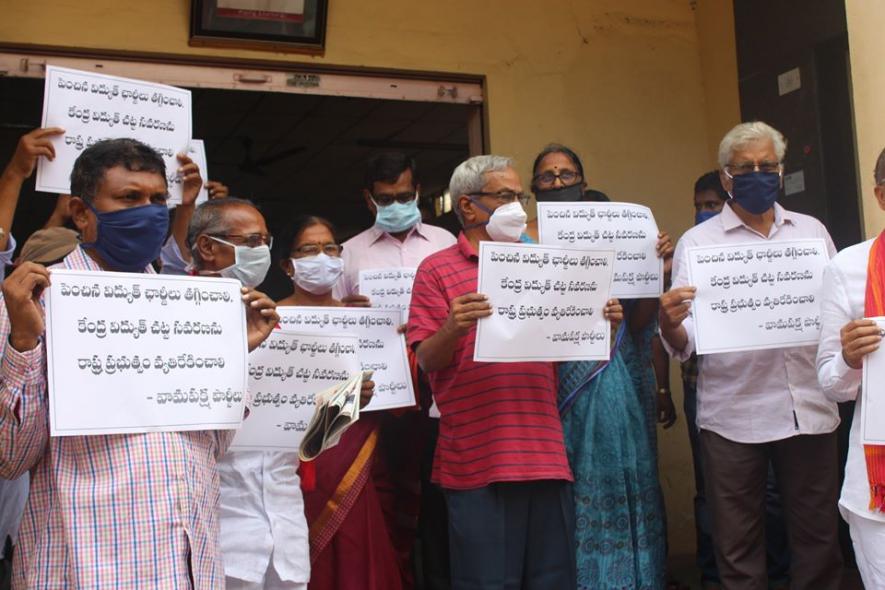 పెంచిన విద్యుత్ ఛార్జీలు తగ్గించాలి.
కేంద్ర విద్యుత్ చట్ట సవరణను
రాష్ట్ర
పెంచిన విద్యుత్ ఛార్జీలు తగ్గించాలి.
కేంద్ర విద్యుత్ చట్ట సవరణను
రాష్ట్ర ప్రభుత్వం వ్యతిరేకించాలి
- వామపక్ష పార్టీలు
విద్యుత్ ఛార్జీలు తగ్గించాలి.
కేంద్ర విద్యుత్ చట్ట సవరణను
ప్రభుత్వం వ్యతిరేకించాలి
- వామపక్ష
పార్టీలు
పెంచిన విద్యుత్ ఛార్జీలు తగ్గించాలి.
కేంద్ర విద్యుత్ చట్ట సవరణను
రాష్ట్ర ప్రభుత్వం వ్యతిరేకించాలి
- వామపక్ష పార్టీలు
పెంచిన విద్యుత్ ఛార్జీలు తగ్గించాలి.
కేంద్ర విద్యుత్ చట్ట సవరణను
పార్టీలు
పెంచిన విద్యుత్ ఛార్జీలు తగ్గించాలి
కేంద్ర విద్యుత్ చట్ట సవరణను
రాష్ట్ర ప్రభుత్వం వ్యతిరేకించాలి
- వామపక్ష